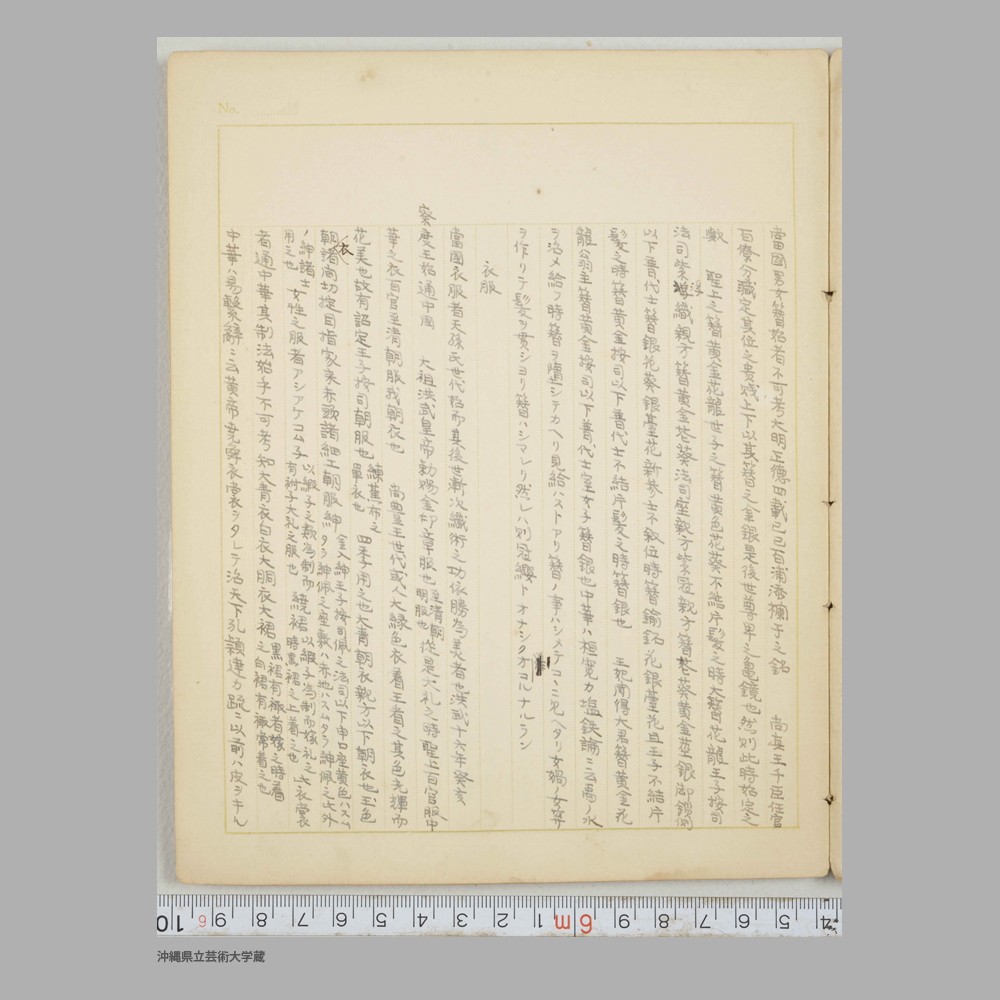 當國男女簪始者不可考大明正德四載己巳百浦添欄干之銘 尚真王千臣任官
百僚分職定其位之貴賤上下以其簪之金銀是後世尊卑之亀鏡也然則此時始定之
歟 聖上之簪黄金花龍世子之簪黄色花葵不結片髪之時大簪花龍王子按司
法司紫 浮織親方簪黄金花葵法司座親方紫冠親方簪花葵黄金莖銀御鎖側
以下普代士簪銀花葵銀莖花新参士不叙位時簪鍮鉐花銀莖花且王子不結片
髪之時簪黄金按司以下普代士不結片髪之時簪銀也 王妃聞得大君簪黄金花
龍翁主簪黄金按司以下普代士室女子簪銀也中華ハ桓寛カ塩鉄論ニ云禹ノ水
ヲ治メ給フ時簪ヲ墮シテカヘリ見給ハストアリ簪ノ事ハシメテコヽニ見ヘタリ女媧ノ女笄
ヲ作リテ髪ヲ貫シヨリ簪ハシマレリ然レハ則冠纓ト オナシク オコルナルラン
衣服
當國衣服者天孫氏世代始而其後世漸次織術之功依勝為美者也洪武十六年癸亥
察度王始通中国 大祖洪武皇帝勅賜金印章服也 至清朝明服也 從是大礼之時聖上百官服中
華之衣百官至清朝服我朝衣也 尚豊王世代或人大緑色衣着王者之其色光輝而
花美也故有詔定王子按司朝服也 練蕉布之單衣也 四季用之也大青朝衣親方以下朝衣也玉色
朝衣諸間切掟目指家来赤歌諸細工朝服紳 金入紳王子按司佩之法司以下申口座黄色ハスムタラ紳佩之座敷ハ赤地ハスムタラ紳佩之此外
ノ紳諸士用之也 女性之服者アシアケコムチ 以緞子之類為制而有衿子大礼之服也 繞裙 以緞子為制而嫁礼之比衣裳時裏裙之上着之也
者通中華其制法始乎不可考知大青衣白衣大胴衣大裙 裏裙有 者嫁之時着之向裙有 常着之也
中華ハ易繫辭ニ云黄帝堯舜衣裳ヲタレテ治天下孔穎達カ疏ニ以前ハ皮ヲキル
No.
沖縄県立芸術大学蔵
10 9 8 7 6 5 4 3 2 1 6m 9 8 7 6 5 4